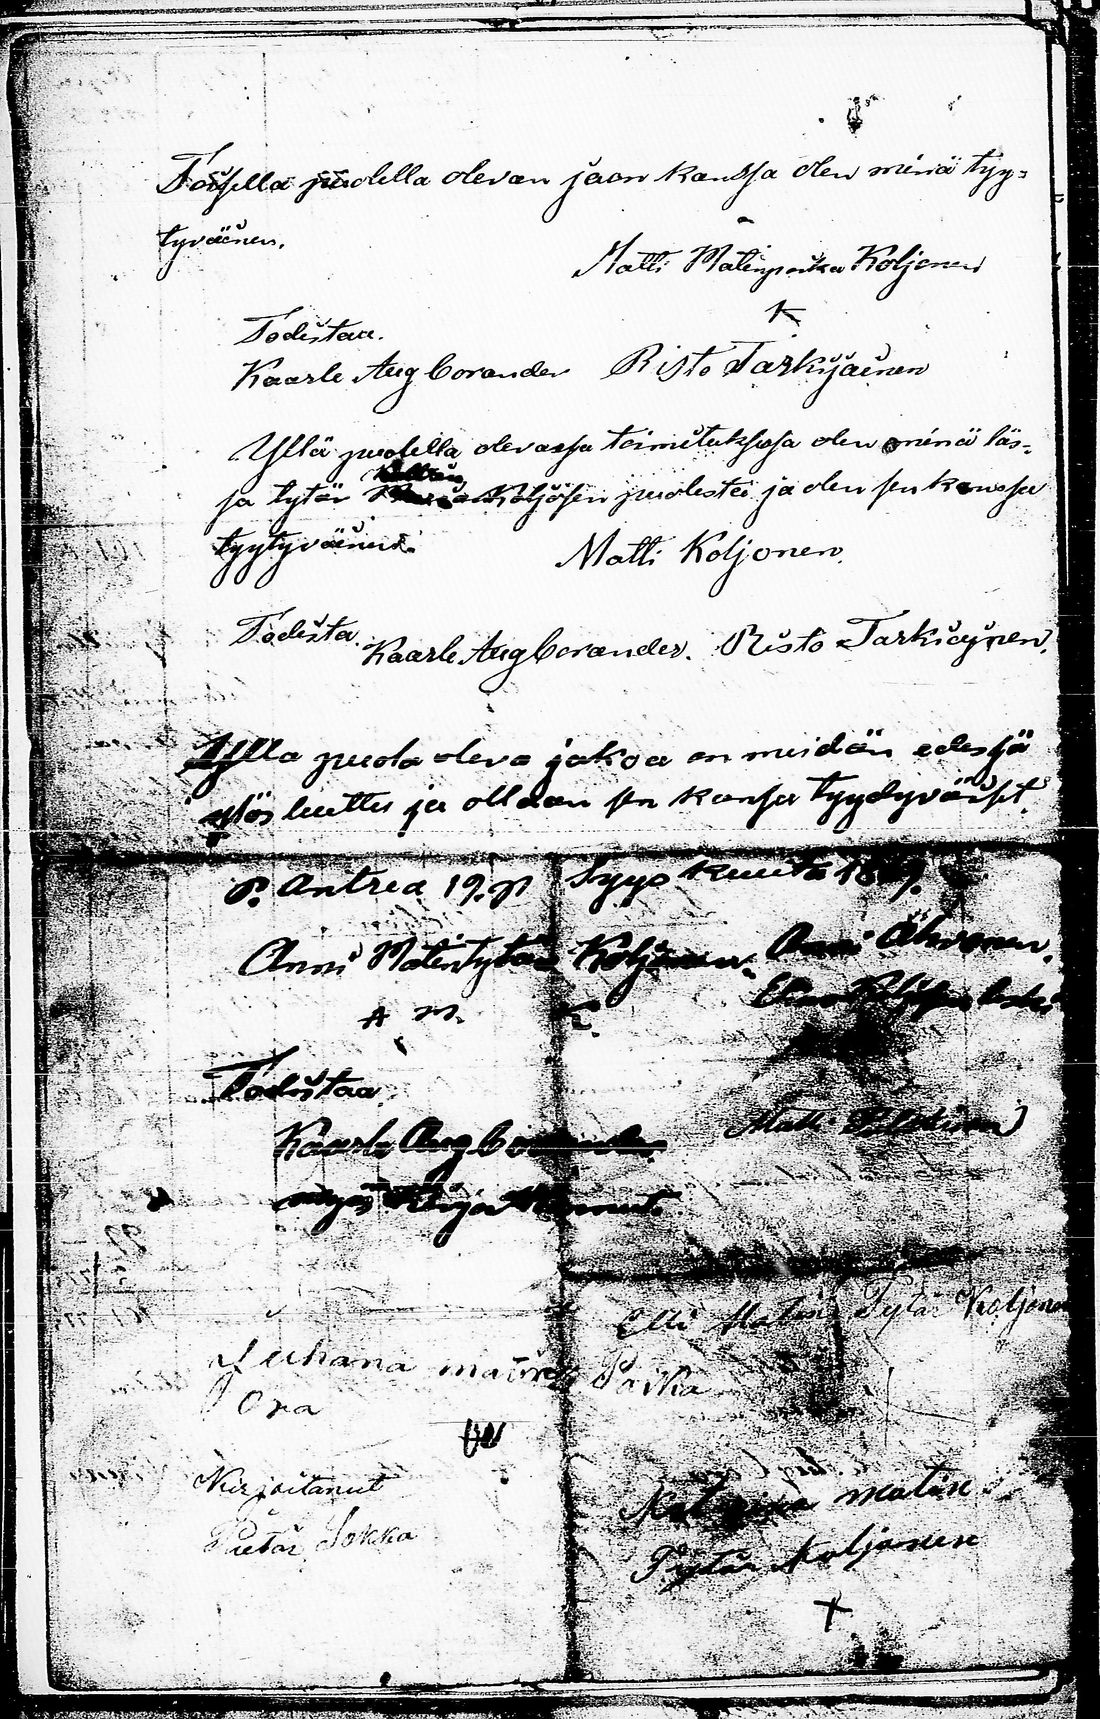 Toisella puolella olevan jaon kanssa olen minä tyy=
tyväinen.
Matti Matinpoika Koljonen
K
Todistaa.
Kaarle Aug Corander Risto Tarkijainen
Yllä puolella olevassa toimituksessa olen minä läs-
ja tytär Koljosen puolesta ja olen sen kanssa
tyytyväinen.
Matti Koljonen.
Todista. Kaarle Aug Corander. Risto Tarkiaynen.
Ylla puola oleva jakoa on meidän edesä
ylös luettu ja ollaan sen kansa tyydyväiset.
P. Antrea 19. p Syys kuuta
Anni Matintytär Koljonen. Anni Ähvonen.
A M K.
Todistaa
Kaarle Aug Corander
Matti
Elli Matin Tytär Koljonen
Juhana matin Poika
Ora
Kirjoitanut
Pietar Sokka
Katarina matin
Tytär Koljonen
+